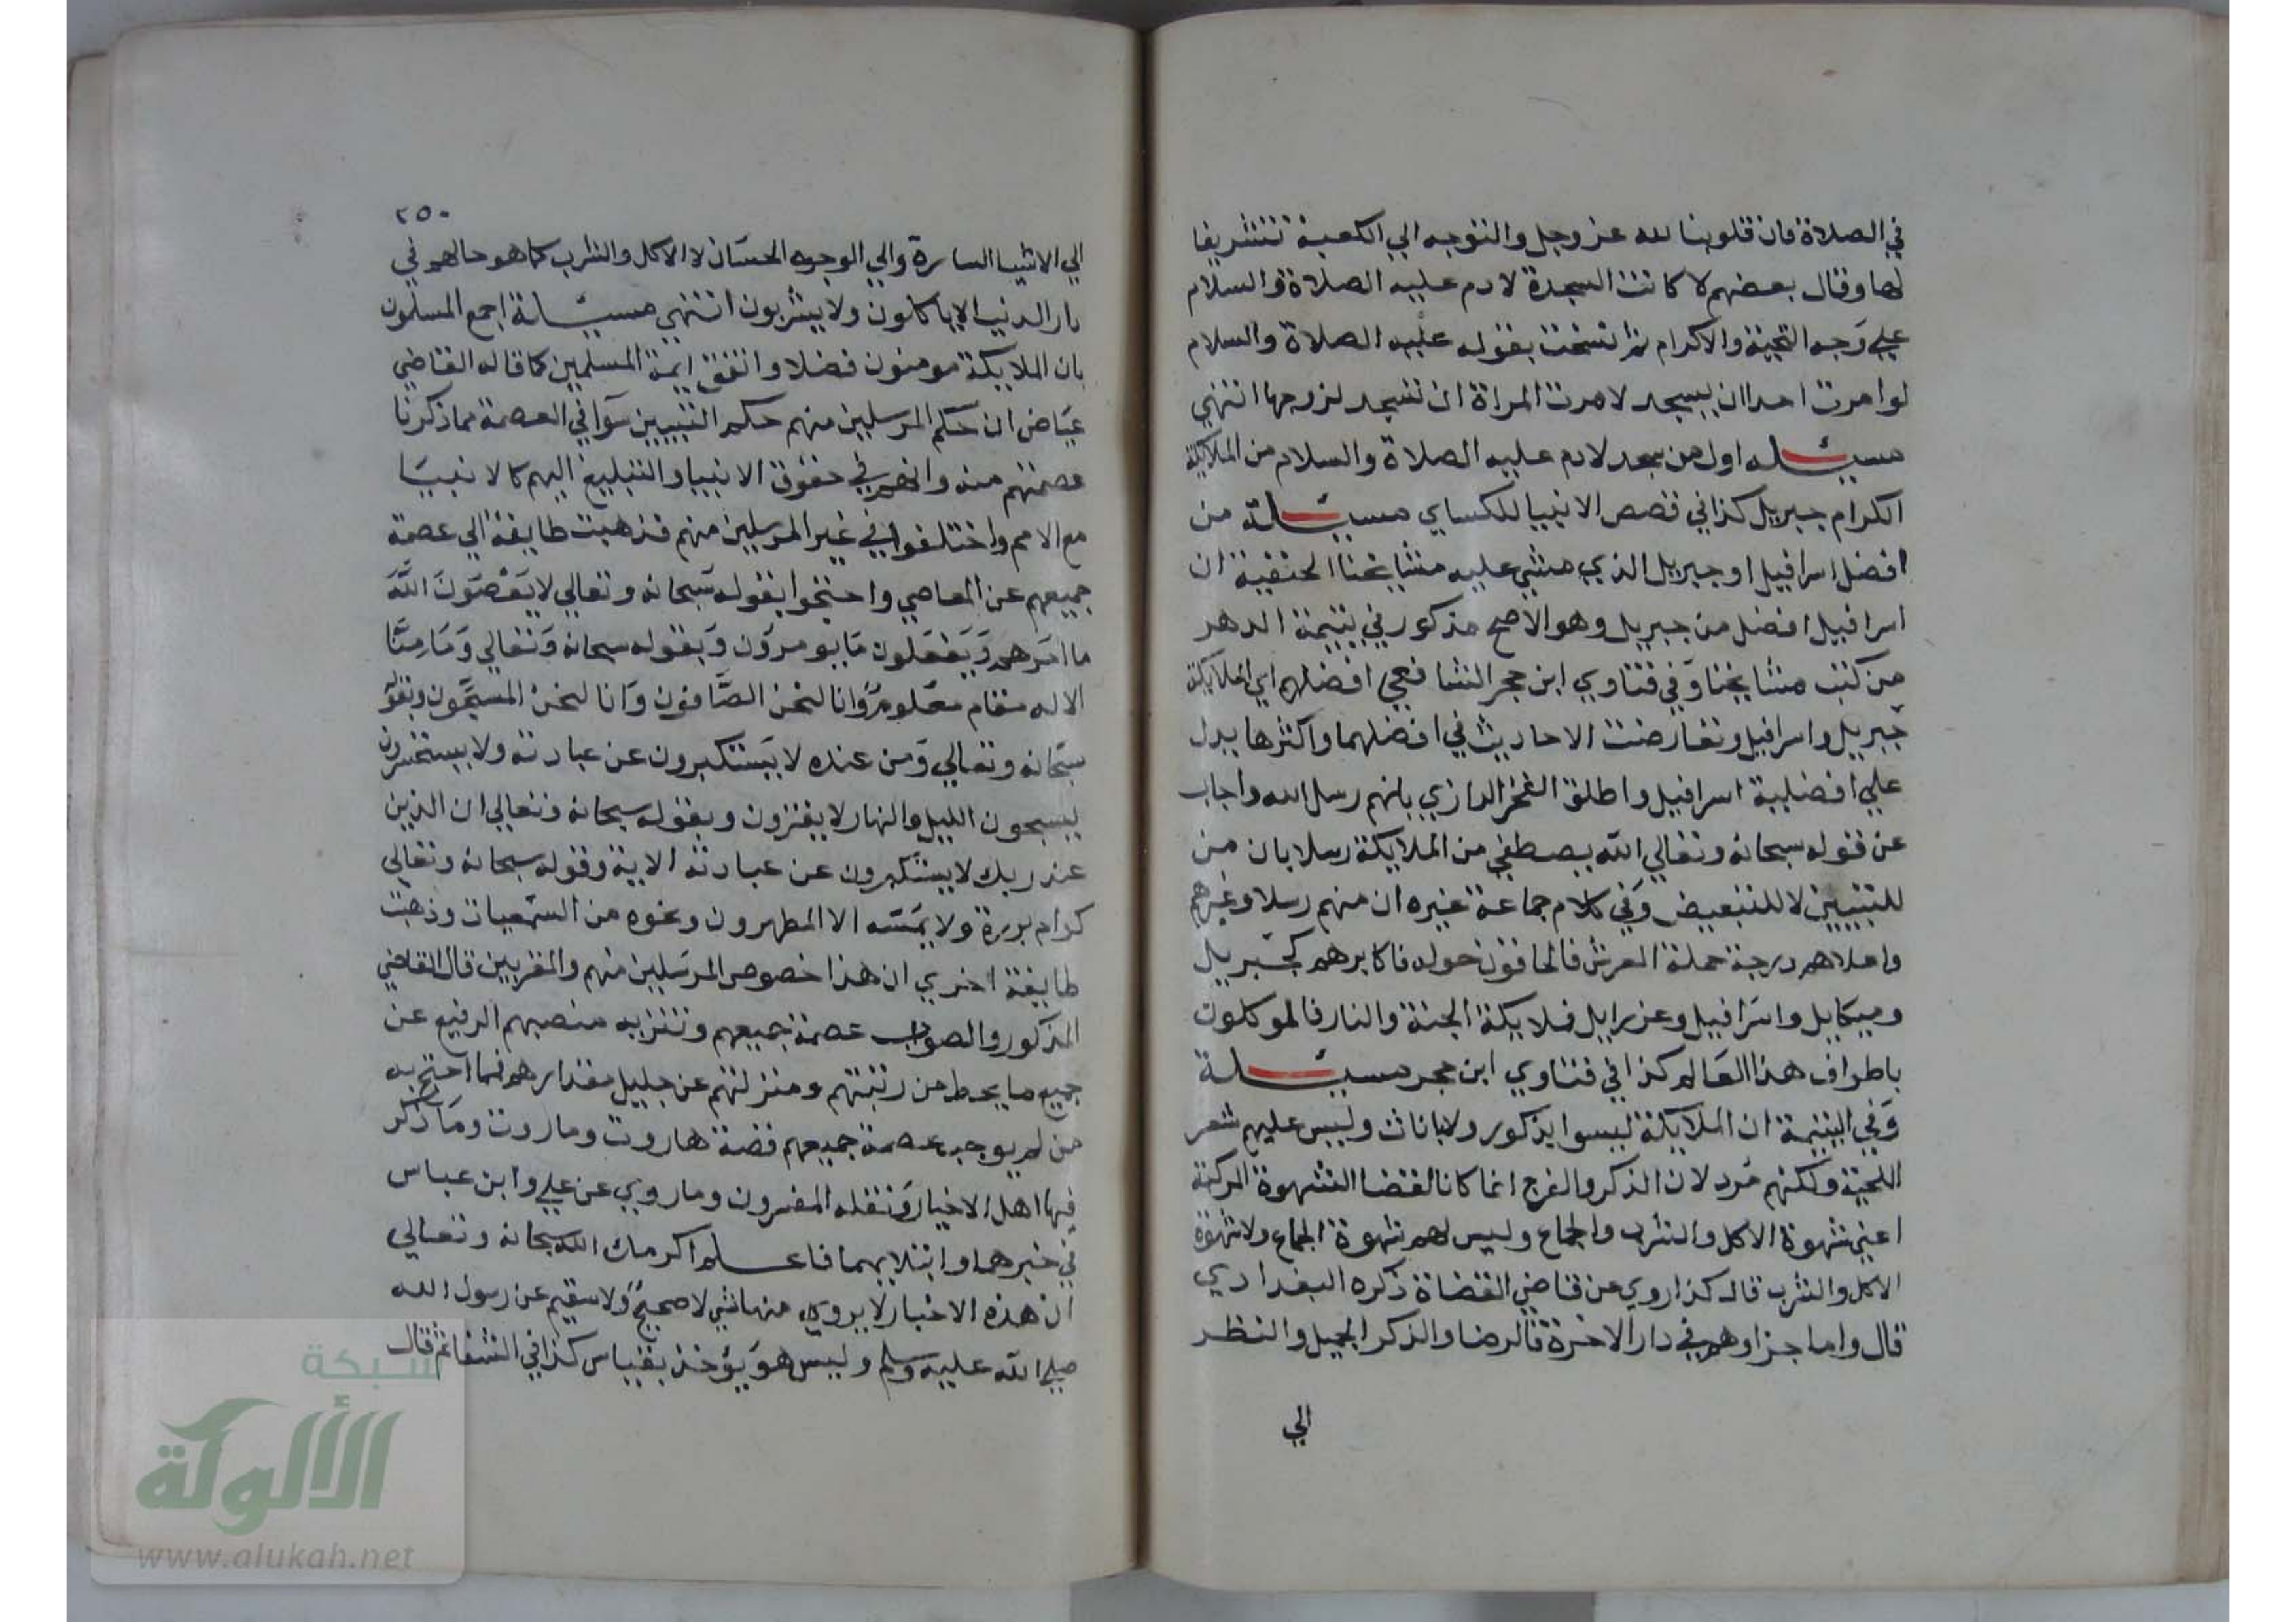 في الصلاة فان قلوبنا لله عز وجل والتوجه الي الكعبة تشريفا
لها وقال بعضهم لا كانت السجدة لادم عليه الصلاة والسلام
علي وجه التحية والاكرام ثم انسخت بقوله عليه الصلاة والسلام
لو امرت احدا ان يسجد لامرت المراة ان تسجد لزوجها انتهي
مسيلة اول من سجد لادم عليه الصلاة والسلام من الملايكة
الكرام جبريل كذا في قصص الانبيا للكساي مسيلة من
افضل اسرافيل او جبريل الذي مشي عليه مشايخنا الحنفية ان
اسرافيل افضل من جبريل وهو الاصح مذكور في يتيمة الدهر
من كتب مشايخنا وفي فتاوي ابن حجر الشافعي افضلهم اي الملايكة
جبريل واسرافيل وتعارضت الاحاديث في افضلهما واكثرها يدل
علي افضلية اسرافيل واطلق الفخر الرازي بانهم رسل الله واجاب
عن قوله سبحانه وتعالي الله يصطفي من الملايكة رسلا بان من
للتبيين لا للتبعيض وفي كلام جماعة غيره ان منهم رسلا وغيرهم
واعلاهم درجة حملة العرش فالحافون حوله فاكابرهم كجبريل
وميكايل واسرافيل وعزرايل فملايكة الجنة والنار فالموكلون
باطراف هذا العالم كذا في فتاوي ابن حجر مسيلة
وفي اليتيمة ان الملايكة ليسوا بذكور ولا باناث وليس عليهم شعر
اللحية ولكنهم مرد لان الذكر والفرج انما كانا لقضا الشهوة المركبة
اعني شهوة الاكل والشرب والجماع وليس لهم شهوة الجماع ولا شهوة
الاكل والشرب قال كذا روي عن قاضي القضاة ذكره البغدادي
قال واما جزاوهم في دار الاخرة فالرضا والذكر الجميل والنظر
الي
٢٥٠
الي الاشيا السارة والي الوجوه الحسان لا الاكل والشرب كما هو حالهم في
دار الدنيا لا ياكلون ولا يشربون انتهي مسيلة اجمع المسلمون
بان الملايكة مومنون فضلا واتفق ايمة المسلمين كما قاله القاضي
عياض ان حكم المرسلين منهم حكم النبيين سوا في العصمة مما ذكرنا
عصمتهم منه وانهم في حقوق الانبيا والتبليغ اليهم كالانبيا
مع الامم واختلفوا في غير المرسلين منهم فذهبت طايفة الي عصمة
جميعهم عن المعاصي واحتجوا بقوله سبحانه وتعالي لا يعصون الله
ما امرهم ويفعلون ما يومرون وبقوله سبحانه وتعالي وما منا
الا له مقام معلوم وانا لنحن الصافون وانا لنحن المسبحون وبقوله
سبحانه وتعالي ومن عنده لا يستكبرون عن عبادته ولا يستحسرون
يسبحون الليل والنهار لا يفترون وبقوله سبحانه وتعالي ان الذين
عند ربك لا يستكبرون عن عبادته الاية وقوله سبحانه وتعالي
كرام بررة ولا يمسه الا المطهرون ونحوه من السمعيات وذهبت
طايفة اخري ان هذا خصوص المرسلين منهم والمقربين قال القاضي
المذكور والصواب عصمة جميعهم وتنزيه منصبهم الرفيع عن
جميع ما يحط من رتبتهم ومنزلتهم عن جليل مقدارهم فما احتج به
من لم يوجب عصمة جميعهم قصة هاروت وماروت وما ذكر
فيها اهل الاخبار ونقله المفسرون وما روي عن علي وابن عباس
في خبرهما وابتلايهما فاعلم اكرمك الله سبحانه وتعالي
ان هذه الاخبار لا يروي منها شي لا صحيح ولا سقيم عن رسول الله
صلي الله عليه وسلم وليس هو يؤخذ بقياس كذا في الشفا ثم قال
شبكة
الألوكة
www.alukah.net